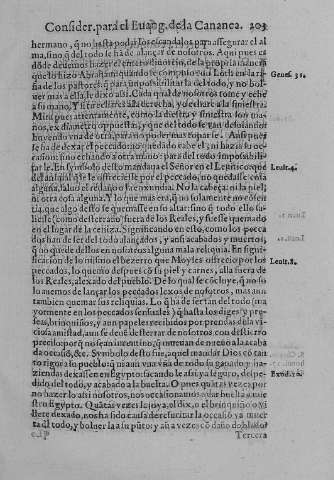 Consider. para el Euãg. de la Cananea. 203
hermano, q̃ no basta podar los escandalos para assegurar el al
ma, sino q̃ del todo se ha de alançar de nosotros. Aqui pues es
dõde deuemos hazer el
lo hizo Abraham quando Loth en la ri- Genes. 31.
ña de los pastores: q̃ para impossibilitar la del todo, y no bol-
uer mas a ella, le dixo assi. Cada qual de nosotros tome y eche
a su mano, Y si tu echares a la derecha, yo echare a la siniestra.
Mira pues atentamente, como la diestra y siniestra son ma
nos, ex diametro oppuestas, y que del todo se van desuiando
huyendo vna de otra, para no poderse mas topar se. Assi pues
se ha de dexar el peccado: no quedãdo rabo el, ni hazia la oc-
casion: sino echando a otra mano: para del todo impossibili-
tarle. En symbolo desto manda el Señor en el Leuitico, que Leuit. 4.
del animal q̃ se offreciesse por el peccado, no quedasse cosa
alguna, saluo el redaño o la enxundia. No la cabeça: ni la piel;
ni otra cosa alguna. Y lo que mas era, q̃ no solamente no
tia, que algo desto se quemasse en su altar sino q̃ todo ello sa-
liesse (como desterrado) fuera de los Reales, y fuesse quemado
en el lugar de la ceniza. Significando en esto, como los pecca
dos han de ser del todo lançados, y assi acabados y muertos,
q̃ no quede dellos en nosotros alguna mala reliquia. En signi-
ficación de lo mismo el bezerro que Moyses offrecio por los Leuit. 8.
peccados, lo quemo despues cõ su piel y carnes, alla fuera de
los Reales, alexado del pueblo. De lo qual se cõcluye, q̃ no so
lo auemos de lançar los peccados lexos de nosotros, mas aun
tambien quemar sus reliquias. Lo q̃ ha de ser tan del todo (ma
yormente en los peccados sensuales) q̃ hasta los diges, y pre-
seas, brinquiños, y aun papeles recibidos por prendas de la vi-
ciosa amistad, aun se deuē desterrar de nosotros con destierro
precilo: porq̃ no sean incentiuo, q̃ mueuan de nueuo a la acaba
da occasiõ, &c. Symbolo desto fue, aquel mandar Dios cõ tan
to rigor a su pueblo: q̃ ni aun vna vña de todo su ganado y ha-
ziendas dexassen en Egypto: sacando le assi, ya seguro, despe- Exod. 10.
dido del todo, y acabado a la buelta. O pues quãtas vezes por
no hazer lo assi nosotros, nos occasionamos a dar buelta a nue
stro Egypto. Quãtas vezes la joya, el dix, o el brinquiño o vi
llete dexado, nos ha sido causa de resucitar la occasiõ ya muer
ta del todo, y boluer la a su pũto; y aũ a vezes cõ daño doblado:
Tercera